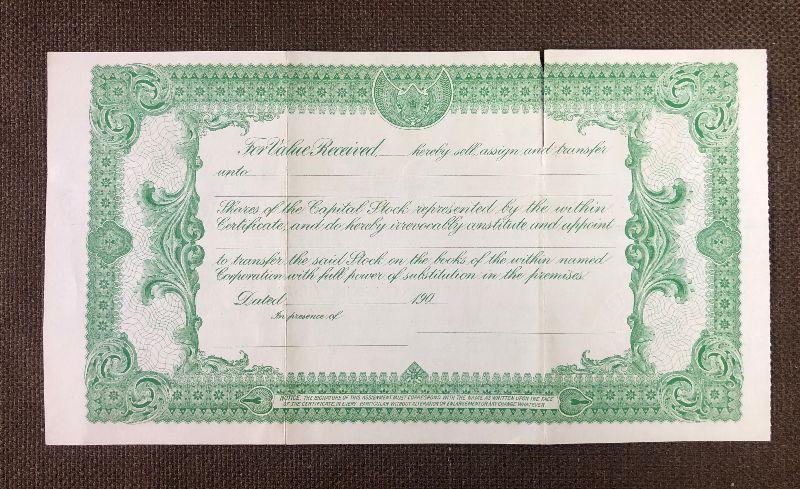 For Value Received, hereby sell, assign and transfer
unto
Shares of the Capital Stock represented by the within
Certificate, and do hereby irrevocably constitute and appoint
to transfer the said Stock on the books of the within named
Corporation with full power of substitution in the premises.
Dated 190
In presence of
NOTICE. THE SIGNATURE OF THIS ASSIGNMENT MUST CORRESPOND WITH THE NAME AS WRITTEN UPON THE FACE
OF THE CERTIFICATE, IN EVERY PARTICULAR WITHOUT ALTERATION OR ENLARGEMENT OR ANY CHANGE WHATEVER.